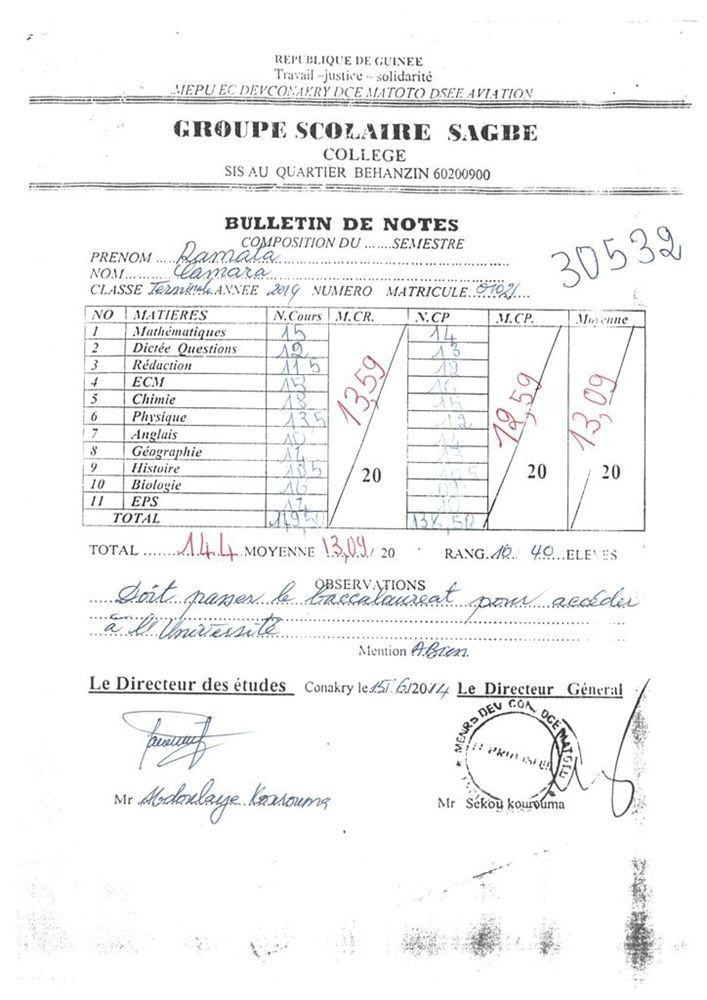 REPUBLIQUE DE GUINEE
Travail –justice – solidarité
MEPU EC DEVCONAKRY DCE MATOTO DSEE AVIATION
GROUPE SCOLAIRE SAGBE
COLLEGE
SIS AU QUARTIER BEHANZIN 60200900
BULLETIN DE NOTES
COMPOSITION DU .......SEMESTRE
30532
PRENOM ....Ramata
NOM....Camara
CLASSE Terminale ANNEE 2014 NUMERO MATRICULE
NO MATIERES N.Cours M.CR. N.CP M.CP. Moyenne
1 Mathématiques 15 14
2 Dictée Questions 12 13
3 Rédaction 11 5 12
4 ECM 15 16
5 Chimie 18 15
6 Physique 13 5 12
7 Anglais 10 14
8 Géographie 14
9 Histoire
10 Biologie 16
11 EPS 17
13,59 20
12,59 20
13,09 20
TOTAL 149,50 138,50
TOTAL .......144 MOYENNE 13,09/ 20 RANG.10.. 40 ELEVES
OBSERVATIONS
Doit passer le baccalaureat pour accéder
à l'Université
Mention A.Bien.
Le Directeur des études Conakry le 15/6/2014 Le Directeur Général
MENRS DEV CON DCE MATOTO
LE PROVISEUR
Mr Abdoulaye Kourouma
Mr Sékou kourouma